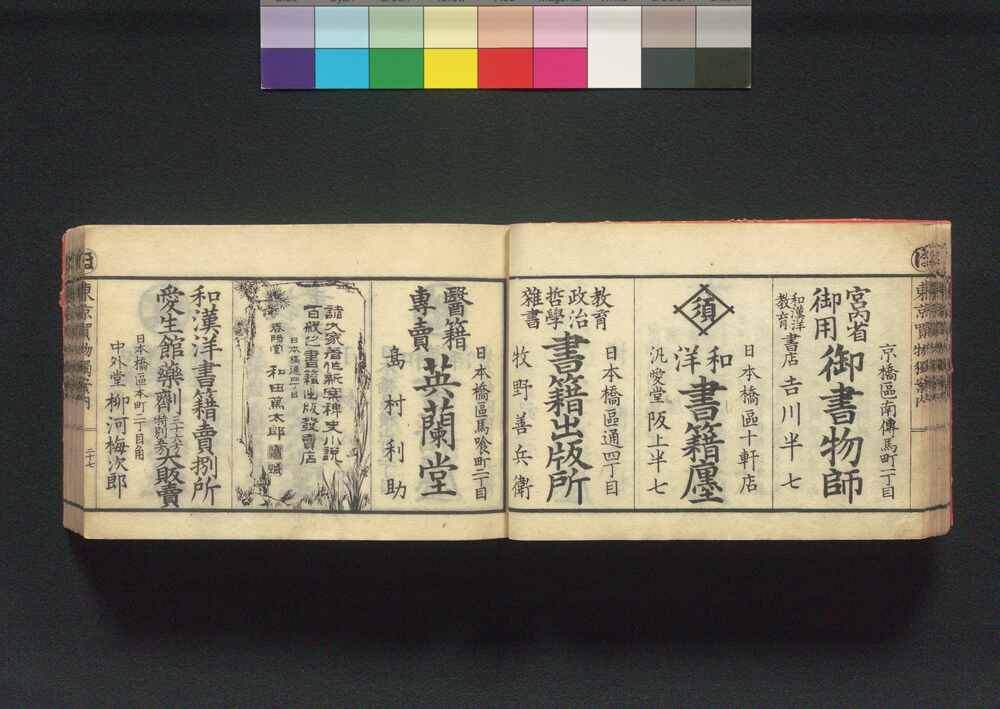 京橋區南傳馬町二丁目
宮內省
御用
御書物師
和漢洋
教育
書店
吉川半七
須
日本橋區十軒店
和洋
書籍廛
阪上半七
日本橋區通四丁目
教育
政治
哲學
雜書
書籍出版所
牧野善兵衛
日本橋區馬喰町二丁目
醫籍
專賣
英蘭堂
島村利助
諸大家著作新案稗史小說
百般之書籍出版發賣店
日本橋通四丁目
春陽堂
和田篤太郎
和漢洋書籍賣捌所
愛生館藥劑
三十六方
大販賣
日本橋區本町二丁目角
中外堂
柳河梅次郎
ほ
二十七